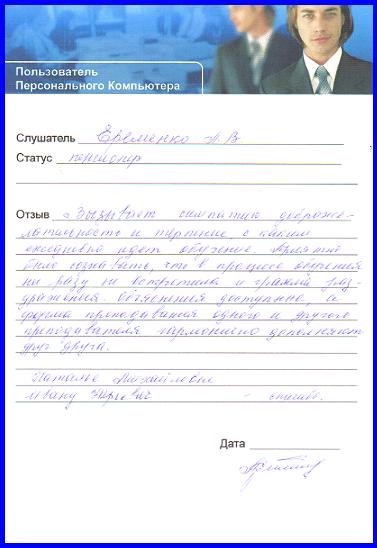 Пользователь
Персонального Компьютера
Слушатель Еременко А В
Статус пенсионер
Отзыв Вызывает симпатию доброже-
лательность и терпение, с каким
ежедневно идет обучение. Приятно
было сознавать, что в процессе обучения
ни разу не встретила и грамма раз-
дражения. Объяснения доступны, а
форма преподавания одного и другого
преподавателя гармонично дополняют
друг друга.
Наталье Михайловне
Ивану - спасибо.
Дата